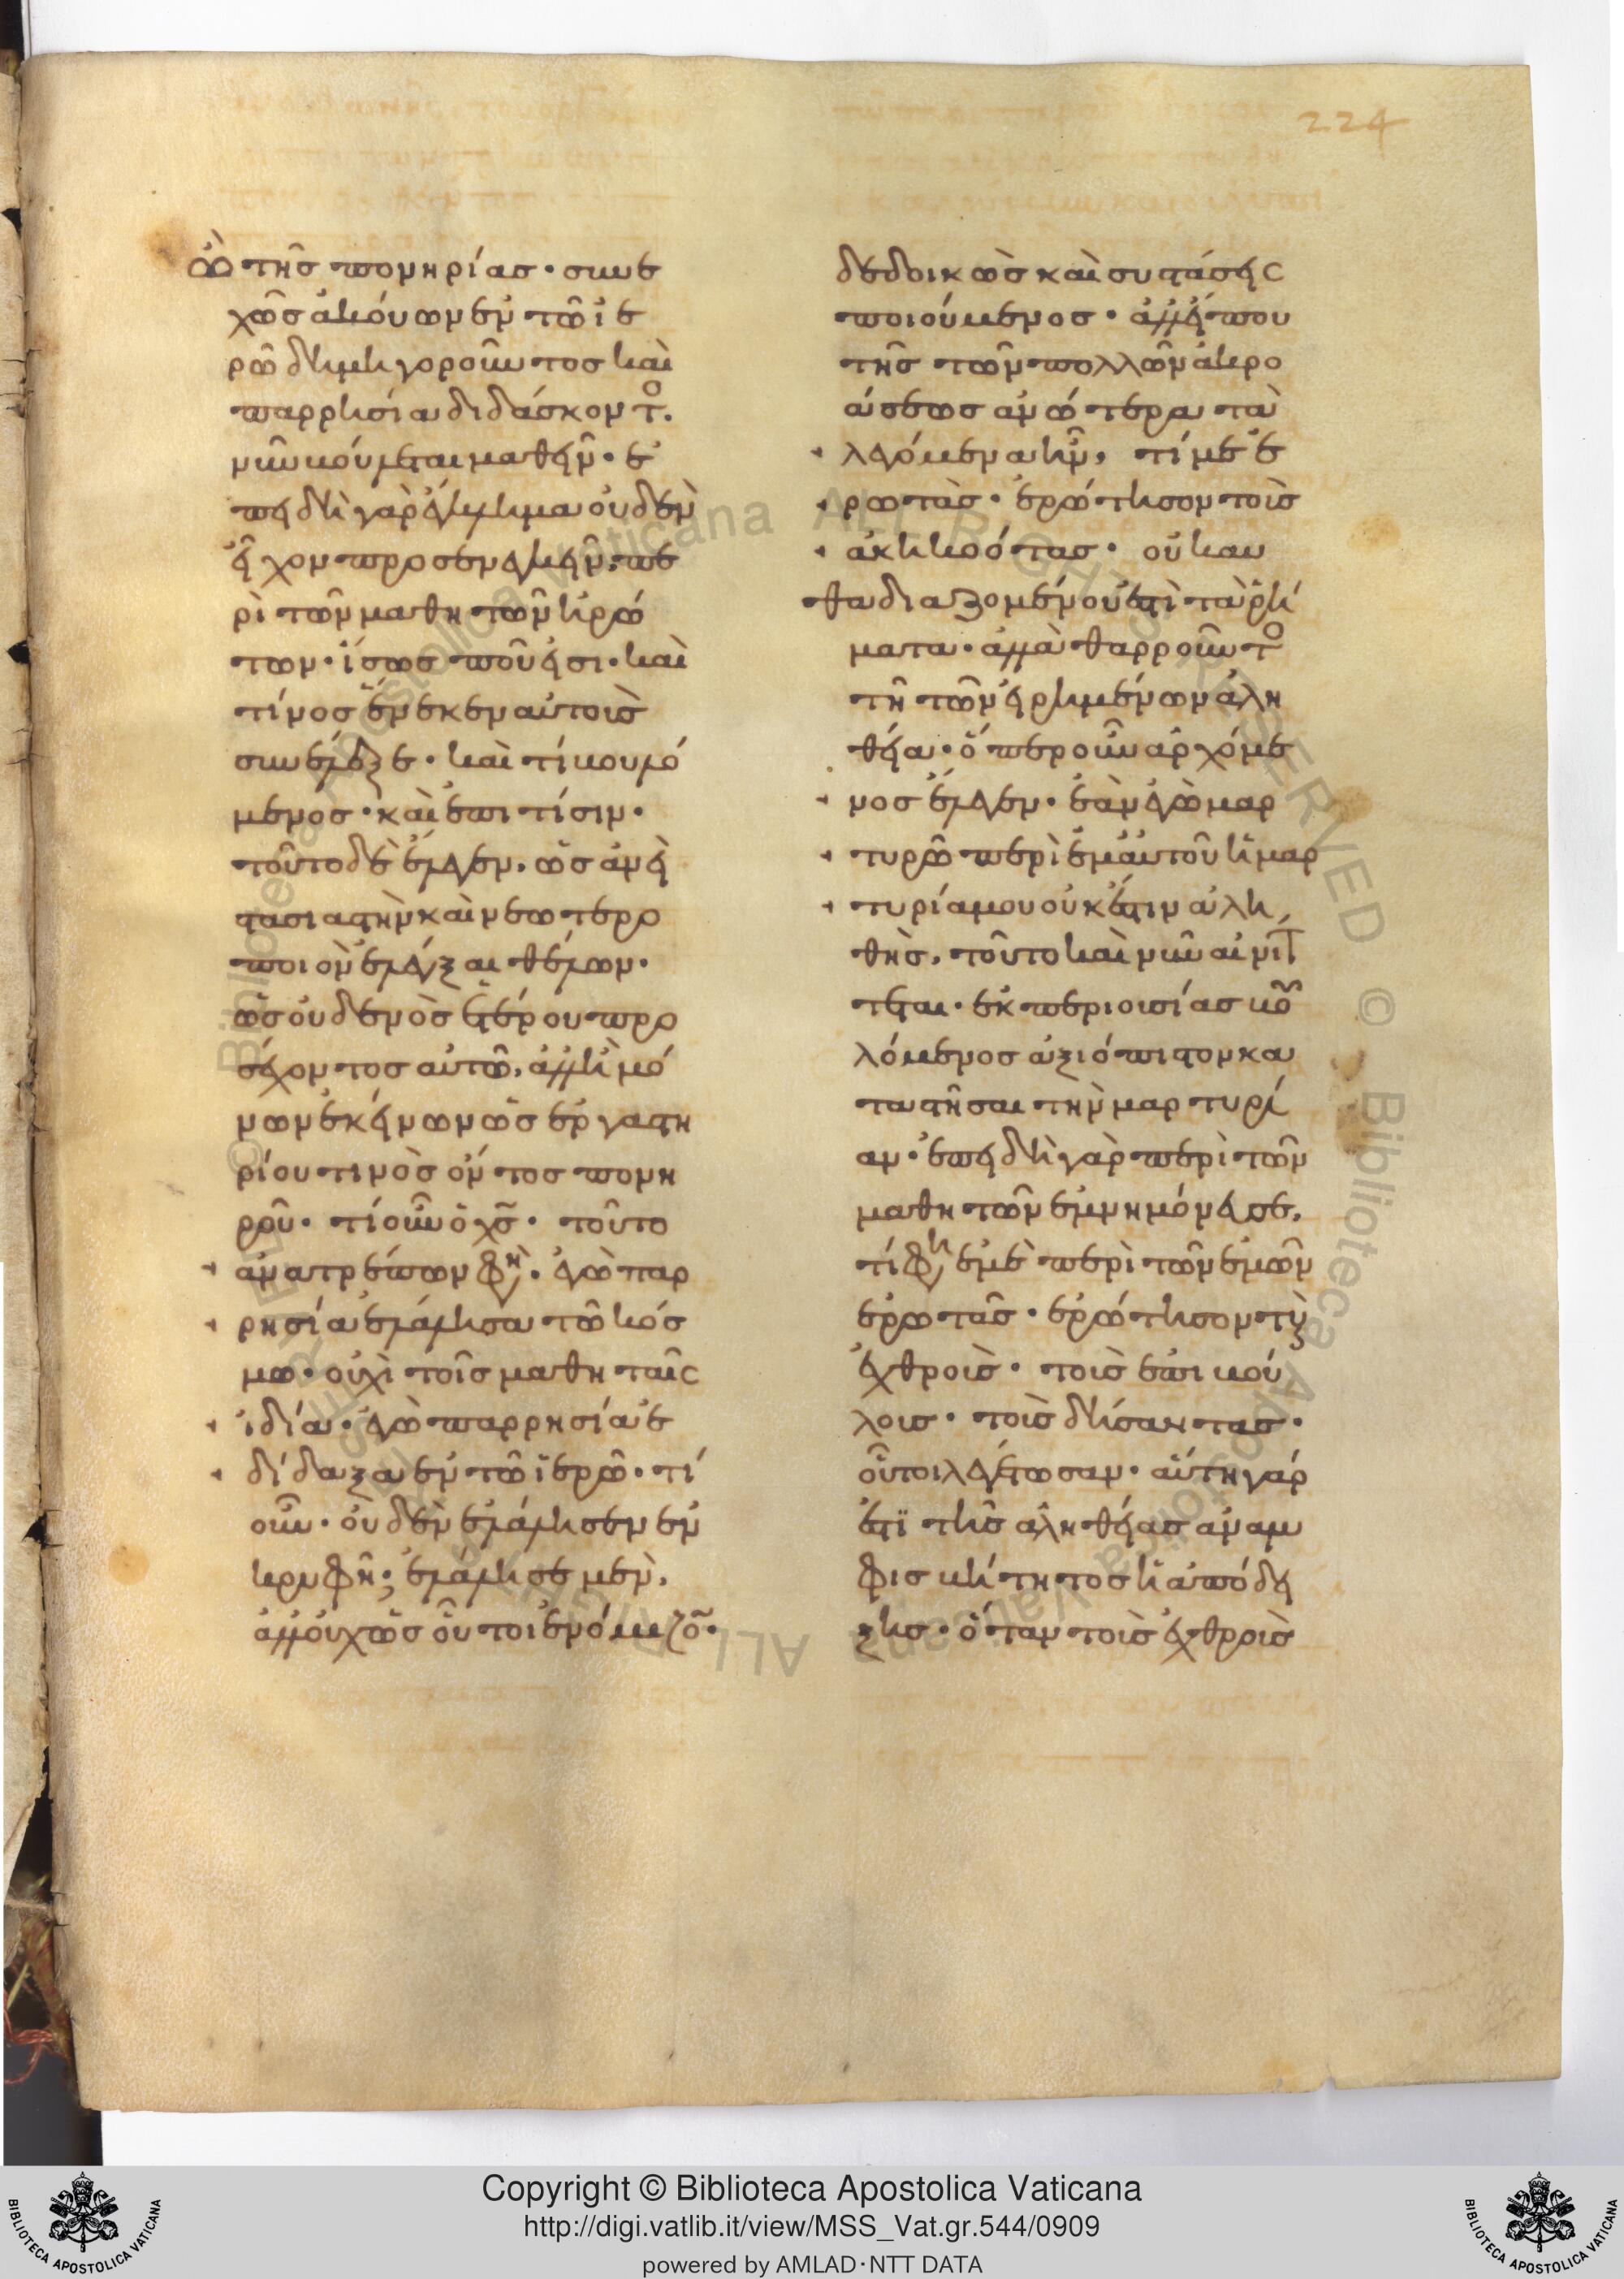 224
Ὢ τῆς πονηρίας· συνε
χῶς ἀκούων ἐν τῷ ἱε
ρῷ δημηγοροῦντος καὶ
παρρησία διδάσκοντο.
νῦν βούλεται μαθεῖν· ἐ
πειδὴ γὰρ ἔγκλημα οὐδὲν
εἶχον προσενεγκεῖν, πε
ρὶ τῶν μαθητῶν ἠρώ
των· ἴσως ποῦ εἰσι· καὶ
τίνος ἕνεκεν αὐτοὺς
συνέλεξε· καὶ τί βουλό
μενος· καὶ ἐπὶ τίσιν·
τοῦτο δὲ ἔλεγεν, ὡς ἂν εἰ
στασιαστὴν καὶ νεωτερο
ποιὸν ἐλέγξαι θέλων·
ὡς οὐδενὸς ἑτέρου προ
σέχοντος αὐτῷ, ἀλλ' ἢ μό
νων ἐκείνων ὡς ἐργαστη
ρίου τινὸς ὄντος πονη
ροῦ· τί οὖν ὁ χς· τοῦτο
ἀνατρέπων φη· ἐγὼ παρ
ρησία ἐλάλησα τῷ κόσ
μω· οὐχὶ τοῖς μαθηταῖς
ἰδία· ἐγὼ παρρησία ἐ
δίδαξα ἐν τῷ ἱερῷ· τί
οὖν· οὐδὲν ἐλάλησεν ἐν
κρυφῆ; ἐλάλησε μὲν,
ἀλλ' οὐχ ὡς οὗτοι ἐνόμιζο·
δεδοικὼς καὶ συστάσεις
ποιούμενος· ἀλλ' εἴ που
τῆς τῶν πολλῶν ἀκρο
άσεως ἀνώτερα τὰ
λεγόμενα ἦν, τί με ἐ
ρωτᾶς· ἐρώτησον τοὺς
ἀκηκοότας· οὐκ αυ
θαδιαζομένου ἐστὶ τὰ ῥή
ματα· ἀλλὰ θαρροῦντο
τῇ τῶν εἰρημένων ἀλη
θεία· ὅπερ οὖν ἀρχόμε
νος ἔλεγεν· ἐὰν ἐγὼ μαρ
τυρῶ περὶ ἐμαυτοῦ ἡ μαρ
τυρία μου οὐκ ἔστιν ἀλη
θὴς, τοῦτο καὶ νῦν αἰνίτ
τεται· ἐκ περιουσίας βου
λόμενος ἀξιόπιστον κα
ταστῆσαι τὴν μαρτυρί
αν· ἐπειδὴ γὰρ περὶ τῶν
μαθητῶν ἐμνημόνευσε,
τί φη ἐμὲ περὶ τῶν ἐμῶν
ἐρωτᾶς· ἐρώτησον τοὺς
ἐχθροὺς· τοὺς ἐπιβού
λους· τοὺς δήσαντας·
οὗτοι λεγέτωσαν· αὕτη γάρ
ἐστὶ τῆς ἀληθείας ἀναμ
φισβήτητος ἡ ἀπόδει
ξις· ὅταν τοὺς ἐχθροὺς
Copyright © Biblioteca Apostolica Vaticana
http://digi.vatlib.it/view/MSS_Vat.gr.544/0909
powered by AMLAD·NTT DATA